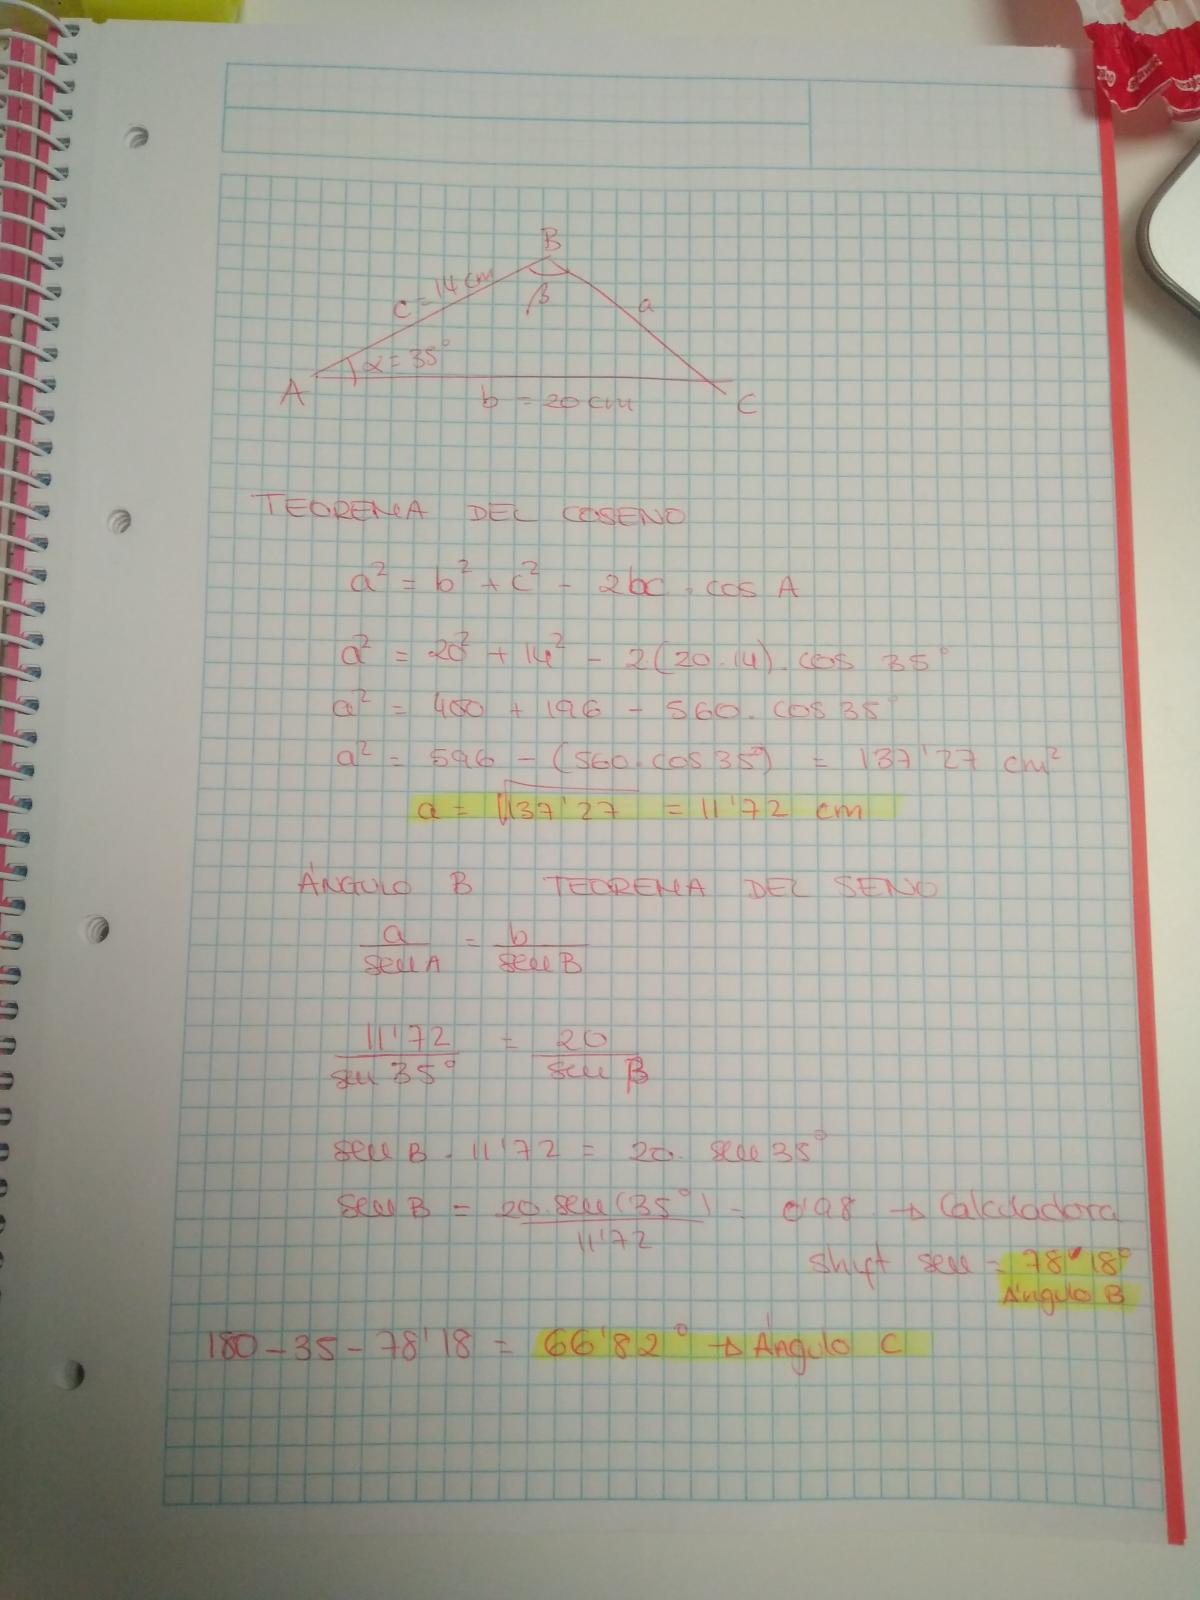 B
c = 14 cm
β
a
α = 35°
A
b = 20 cm
C
TEOREMA DEL COSENO
a² = b² + c² - 2bc · cos A
a² = 20² + 14² - 2(20·14) · cos 35°
a² = 400 + 196 - 560 · cos 35°
a² = 596 - (560 · cos 35°) = 137'27 cm²
a = √137'27 = 11'72 cm
ÁNGULO B TEOREMA DEL SENO
a/sen A = b/sen B
11'72/sen 35° = 20/sen B
sen B · 11'72 = 20 · sen 35°
sen B = 20·sen(35°)/11'72 = 0'98 → Calculadora
shift sen = 78'18°
Ángulo B
180 - 35 - 78'18 = 66'82° → Ángulo C